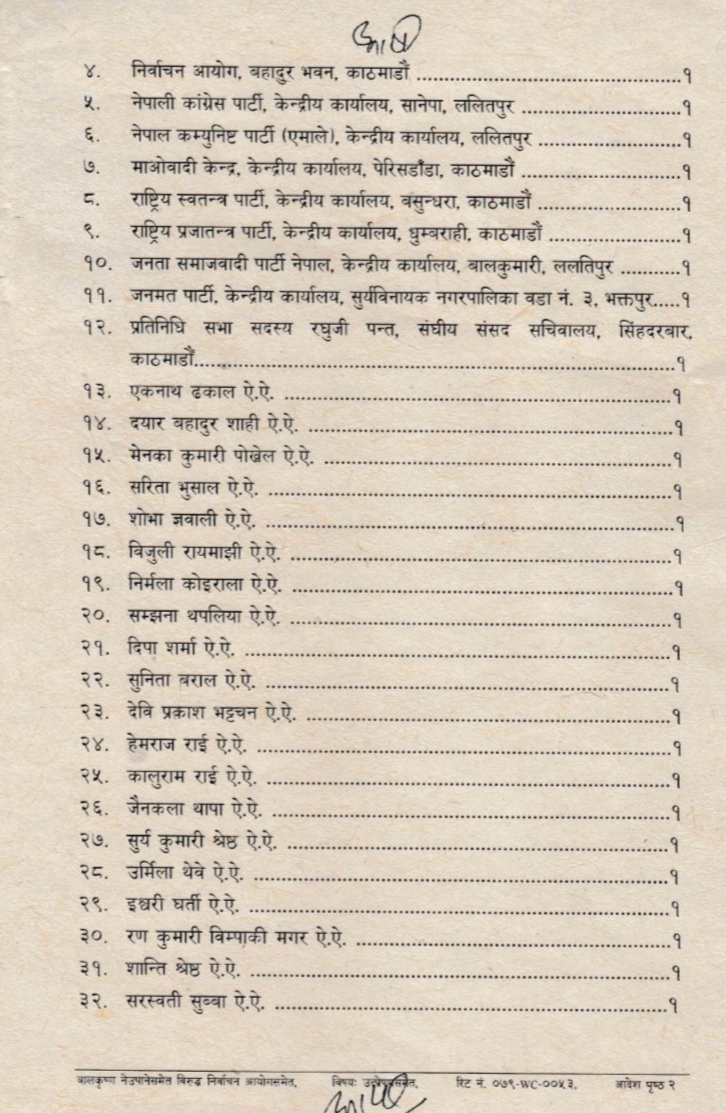 ४. निर्वाचन आयोग, बहादुर भवन, काठमाडौं ........................................१
५. नेपाली कांग्रेस पार्टी, केन्द्रीय कार्यालय, सानेपा, ललितपुर ........................१
६. नेपाल कम्युनिष्ट पार्टी (एमाले), केन्द्रीय कार्यालय, ललितपुर .....................१
७. माओवादी केन्द्र, केन्द्रीय कार्यालय, पेरिसडाँडा, काठमाडौं ........................१
८. राष्ट्रिय स्वतन्त्र पार्टी, केन्द्रीय कार्यालय, बसुन्धरा, काठमाडौं .....................१
९. राष्ट्रिय प्रजातन्त्र पार्टी, केन्द्रीय कार्यालय, धुम्बराही, काठमाडौं ....................१
१०. जनता समाजवादी पार्टी नेपाल, केन्द्रीय कार्यालय, बालकुमारी, ललतिपुर ..........१
११. जनमत पार्टी, केन्द्रीय कार्यालय, सुर्यविनायक नगरपालिका वडा नं. ३, भक्तपुर.....१
१२. प्रतिनिधि सभा सदस्य रघुजी पन्त, संघीय संसद सचिवालय, सिंहदरबार,
काठमाडौं..........................................................................१
१३. एकनाथ ढकाल ऐ.ऐ. ............................................................१
१४. दयार बहादुर शाही ऐ.ऐ. .........................................................१
१५. मेनका कुमारी पोखेल ऐ.ऐ. .......................................................१
१६. सरिता भुसाल ऐ.ऐ. ..............................................................१
१७. शोभा ज्ञवाली ऐ.ऐ. ...............................................................१
१८. विजुली रायमाझी ऐ.ऐ. ...........................................................१
१९. निर्मला कोइराला ऐ.ऐ. ...........................................................१
२०. सम्झना थपलिया ऐ.ऐ. ...........................................................१
२१. दिपा शर्मा ऐ.ऐ. ..................................................................१
२२. सुनिता बराल ऐ.ऐ. ...............................................................१
२३. देवि प्रकाश भट्टचन ऐ.ऐ. .........................................................१
२४. हेमराज राई ऐ.ऐ. ................................................................१
२५. कालुराम राई ऐ.ऐ. ...............................................................१
२६. जैनकला थापा ऐ.ऐ. ..............................................................१
२७. सुर्य कुमारी श्रेष्ठ ऐ.ऐ. ............................................................१
२८. उर्मिला थेवे ऐ.ऐ. .................................................................१
२९. इश्वरी घर्ती ऐ.ऐ. .................................................................१
३०. रण कुमारी विम्पाकी मगर ऐ.ऐ. ..................................................१
३१. शान्ति श्रेष्ठ ऐ.ऐ. .................................................................१
३२. सरस्वती सुब्बा ऐ.ऐ. .............................................................१
बालकृष्ण नेउपानेसमेत विरुद्ध निर्वाचन आयोगसमेत, विषयः रिट नं. ०७९-WC-००५३, आदेश पृष्ठ २